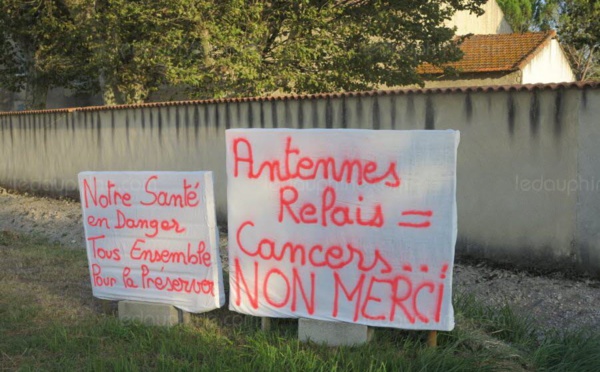 Notre Santé
en Danger
Tous Ensemble
Pour la Préserver
Antennes
Relais =
Cancers...
NON MERCi